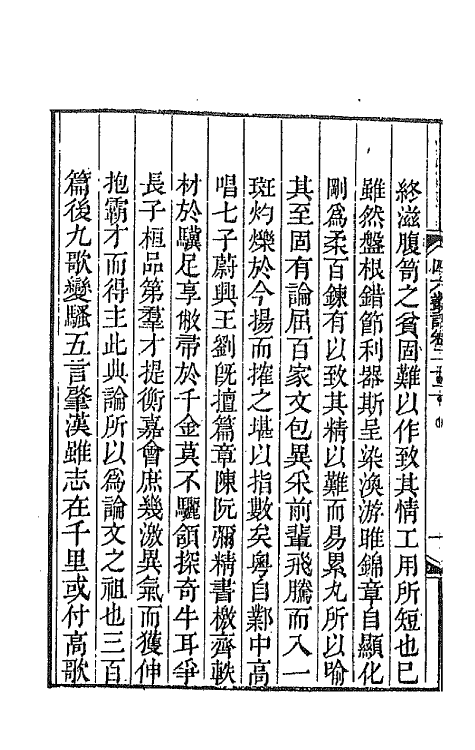 終滋腹笥之貧固難以作致其情工用所短也已
雖然盤根錯節利器斯呈染渙游睢錦章自顯化
剛爲柔百鍊有以致其精以難而易累丸所以喻
其至固有論屈百家文包異采前輩飛騰而入一
斑灼爍於今揚而搉之堪以指數矣粵自鄴中高
唱七子蔚興王劉旣擅篇章陳阮彌精書檄齊軼
材於驥足享敝帚於千金莫不驪頷探奇牛耳爭
長子桓品第羣才提衡嘉會庶幾激異氣而獲伸
抱霸才而得主此典論所以爲論文之祖也三百
篇後九歌變騷五言肇漢雖志在千里或付高歌
四六叢話卷二十